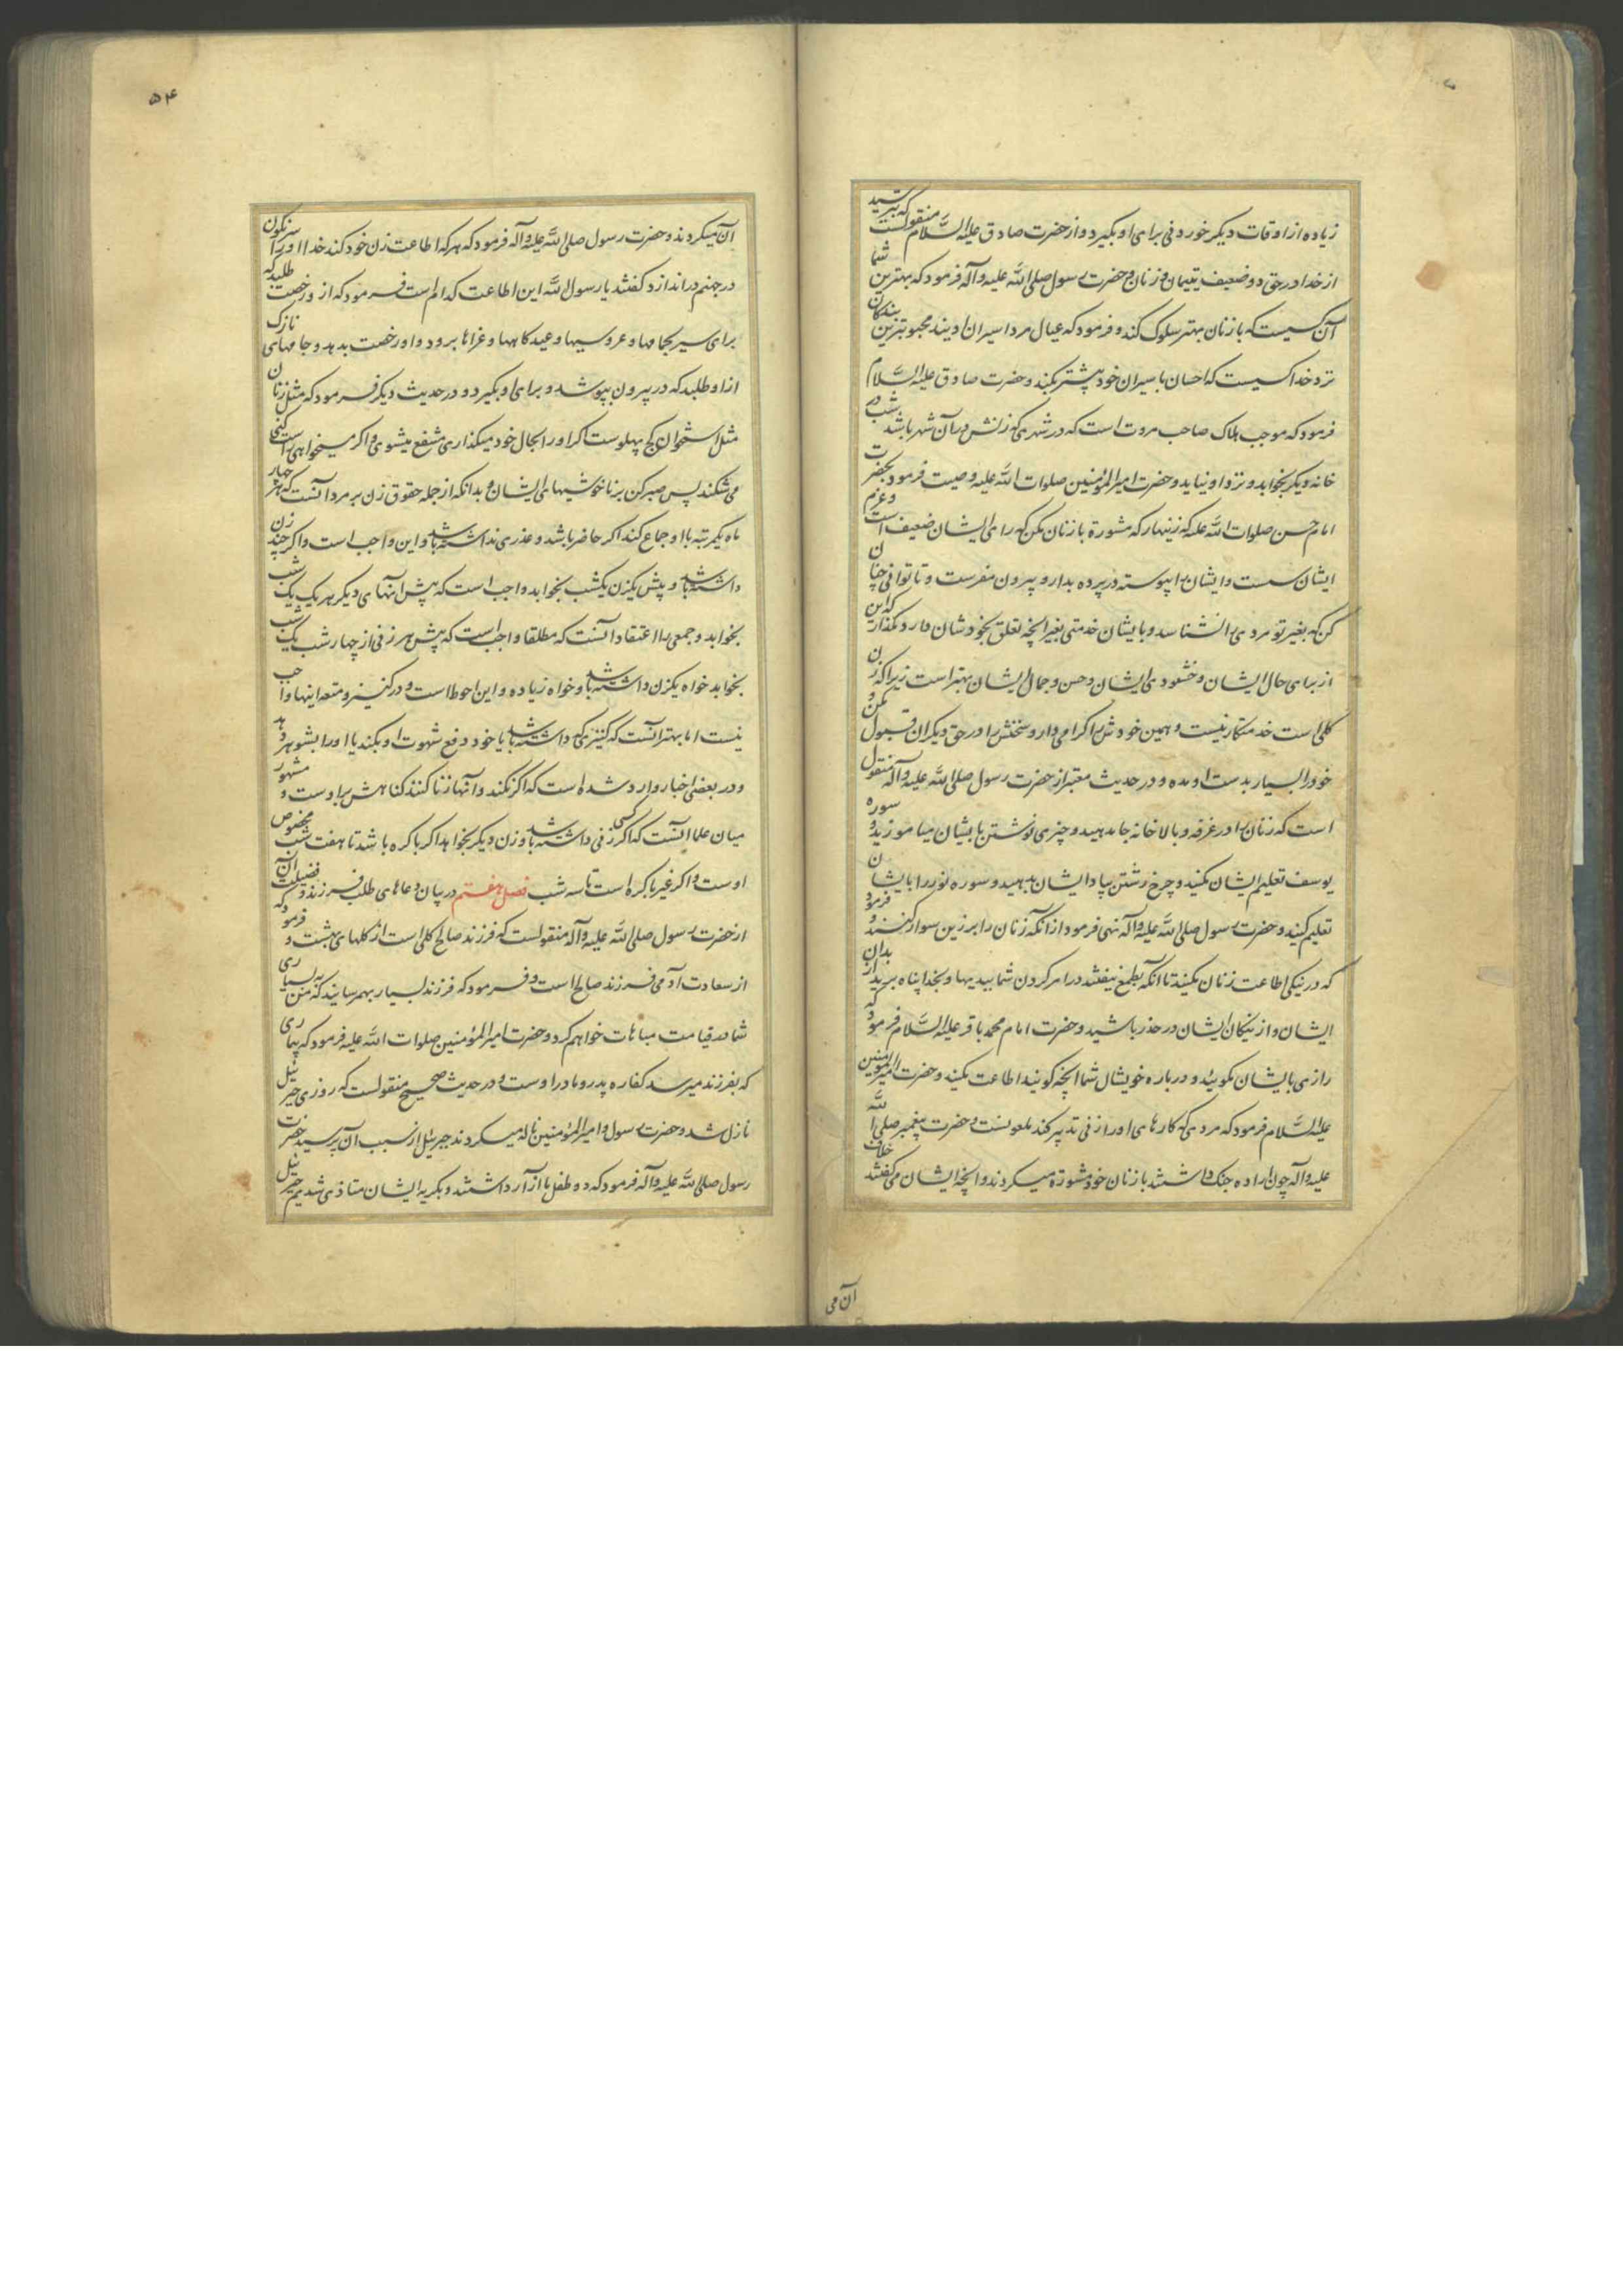 زیاده از اوقات دیگر خوردنی برای او بگیرد و از حضرت صادق علیه السَّلام منقولست که بترسید
از خدا در حق دو ضعیف یتیمان و زنان و حضرت رسول صلی اللّه علیه و آله فرمود که بهترین شما
آن کسیست که با زنان بهتر سلوک کند و فرمود که عیال مرد اسیران اویند محبوبترین بندکان
نزد خدا کسیست که احسان باسیران خود بیشتر بکند و حضرت صادق علیه السَّلام
فرمود که موجب هلاک صاحب مروت است که در شهری که زنش در آن شهر باشد شب در
خانه دیگر بخوابد و نزد او نیاید و حضرت امیر المؤمنین صلوات اللّه علیه وصیت فرمود بحضرت
امام حسن صلوات اللّه علیه که زینهار که مشورة با زنان مکن که رای ایشان ضعیف است و عزم
ایشان سست و ایشان را پیوسته در پرده بدار و بیرون مفرست و تا توانی چنان
کن که بغیر تو مردی را نشناسد و بایشان خدمتی بغیر آنچه تعلق بخودشان دارد مگذار که این
از برای حال ایشان و خشنودی ایشان و حسن و جمال ایشان بهتر است زیرا که زن
کلی است خدمتکار نیست و همین خودش را کرامی دار و سخنش را در حق دیگران قبول مکن و
خود را بسیار بدست او مده و در حدیث معتبر از حضرت رسول صلی اللّه علیه و آله منقول
است که زنان را در غرفه و بالاخانه جا مدهید و چیزی نوشتن بایشان میاموزید و سوره
یوسف تعلیم ایشان مکنید و چرخ رشتن بیاد ایشان بدهید و سوره نور را بایشان
تعلیم کنید و حضرت رسول صلی اللّه علیه و آله نهی فرمود از آنکه زنان را بر زین سوار کنند و فرمود
که در نیکی اطاعت زنان مکنید تا آنکه بطمع نیفتند در امر کردن شما ببدیها و بخدا پناه برید از بدان
ایشان و از نیکان ایشان در حذر باشید و حضرت امام محمد باقر علیه السَّلام فرمود که
رازی بایشان مکوئید و در باره خویشان شما آنچه کویند اطاعت مکنید و حضرت امیر المؤمنین
علیه السَّلام فرمود که مردی که کارهای او را زنی تدبیر کند ملعونست و حضرت پیغمبر صلی اللّه
علیه و آله چون اراده جنک داشتند با زنان خود مشورة میکردند و آنچه ایشان می گفتند خلاف
آن می
۵۴
آن میکردند و حضرت رسول صلی اللّه علیه و آله فرمود که هر که اطاعت زن خود کند خدا او را سرنکون
در جهنم در اندازد کفتند یا رسول اللّه این اطاعت کدام است فرمود که از و رخصت طلبد که
برای سیر بحمامها و عروسیها و عیدکاهها و عزاها برود و او رخصت بدهد و جامهای نازک
از او طلبد که در بیرون بپوشد و برای او بگیرد و در حدیث دیگر فرمود که مثل زنان
مثل استخوان کج پهلوست اگر او را بحال خود میکذاری منتفع میشوی و اکر میخواهی راست کنی
می شکند پس صبر کن بر ناخوشیهای ایشان و بدانکه از جمله حقوق زن بر مرد آنست که هر چهار
ماه یکمرتبه با او جماع کند اکر حاضر باشد و عذری نداشته باشد و این واجب است و اکر چند زن
داشته باشد و پیش یکزن یکشب بخوابد واجب است که پیش آنهای دیگر هر یک یک شب
بخوابد و جمعی را اعتقاد آنست که مطلقا واجب است که پیش هر زنی از چهار شب یک شب
بخوابد خواه یکزن داشته باشد و خواه زیاده و این احوط است و در کنیز و متعه اینها واجب
نیست اما بهتر آنست که کنیزی که داشته باشد یا خود دفع شهوت او بکند یا او را بشوهر دهد
و در بعضی اخبار وارد شده است که اکر نکند و آنها زنا کنند کناهش بر اوست و مشهور
میان علما آنست که اکر کسی زنی داشته باشد و زن دیگر بخواهد اکر باکره باشد تا هفت شب مخصوص
اوست و اکر غیر باکره است تا سه شب فصل هفتم در بیان دعاهای طلب فرزند و فضیلت آن
از حضرت رسول صلی اللّه علیه و آله منقولست که فرزند صالح کلی است از کلهای بهشت و فرمود که
از سعادت آدمی فرزند صالح است و فرمود که فرزند بسیار بهم رسانید که من به بسیاری
شما در قیامت مباهات خواهم کرد و حضرت امیر المؤمنین صلوات اللّه علیه فرمود که بیماری
که بفرزند میرسد کفاره پدر و مادر اوست و در حدیث صحیح منقولست که روزی جبرئیل
نازل شد و حضرت رسول و امیر المؤمنین ناله میکردند جبرئیل از سبب آن پرسید حضرت
رسول صلی اللّه علیه و آله فرمود که دو طفل ما آزار داشتند و بکریه ایشان متاذی شدیم جبرئیل